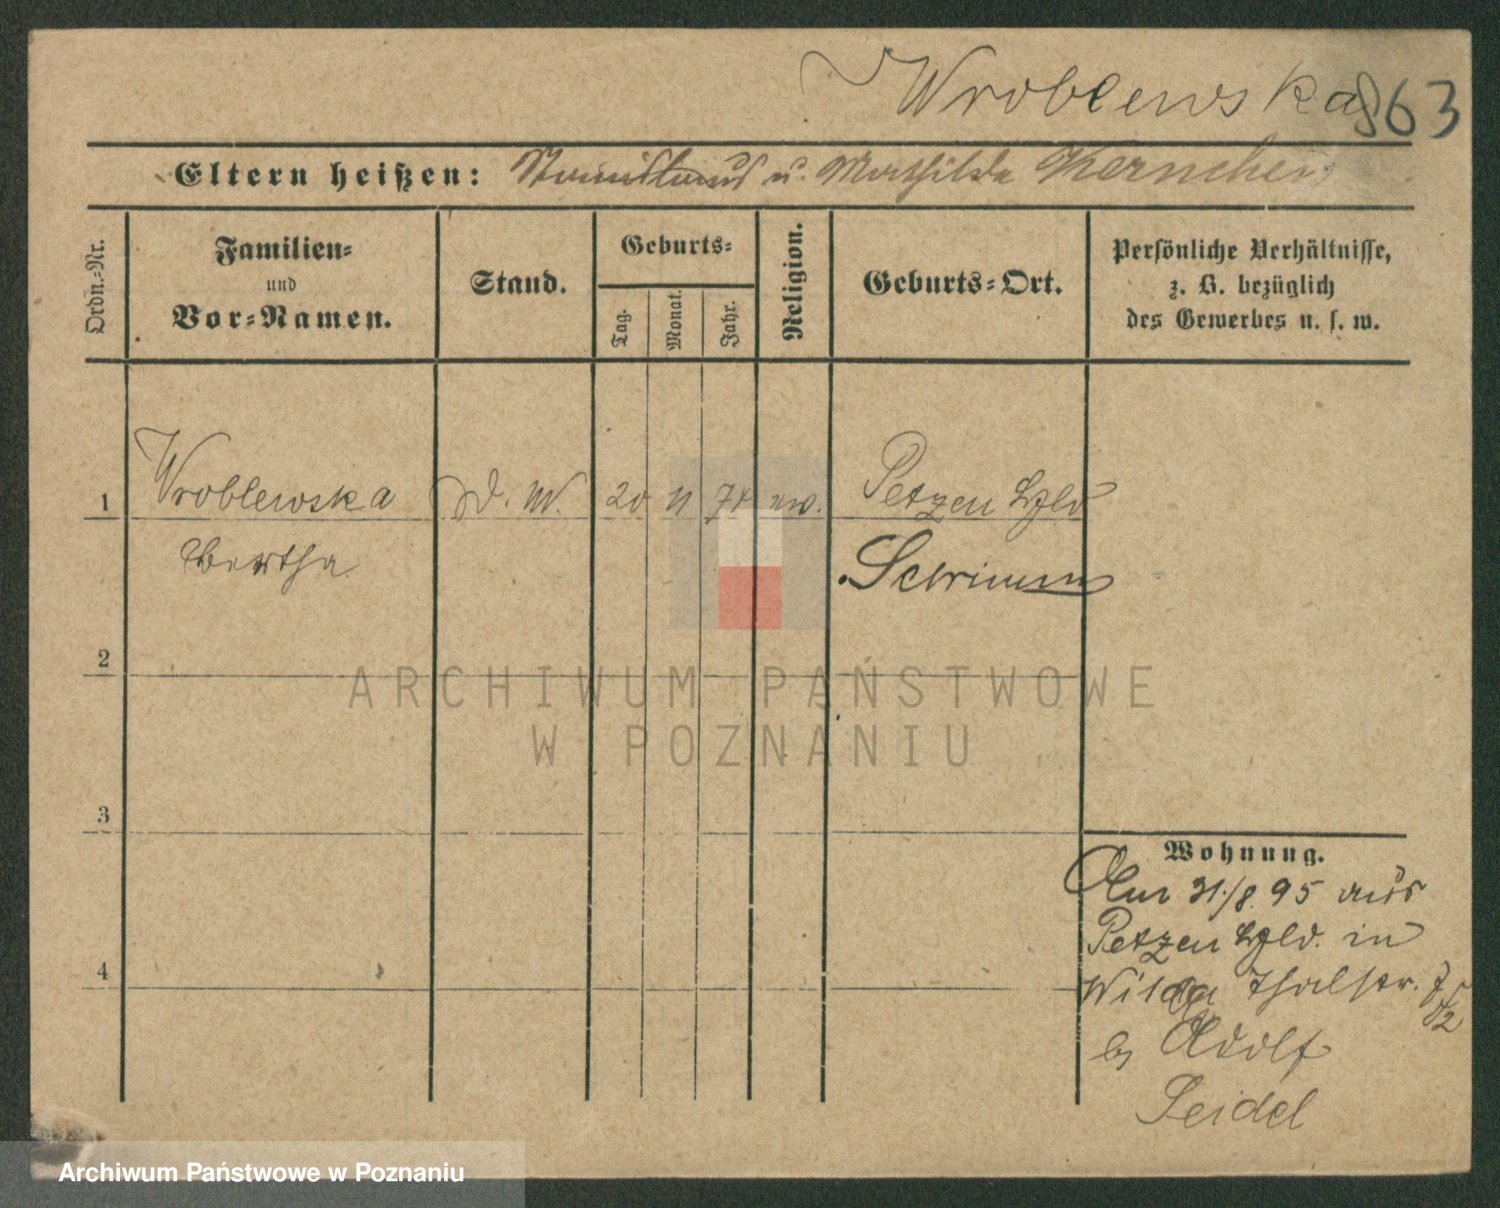 Wroblewska
863
Eltern heißen: Stanislaus u. Mathilde Kernchen
Ordn.-Nr.
Familien-
und
Vor-Namen.
Stand.
Geburts-
Tag.
Monat.
Jahr.
Religion.
Geburts-Ort.
Persönliche Verhältnisse,
z. B. bezüglich
des Gewerbes u. s. w.
1 Wroblewska D. M. 20 11 74 Petzen
Bertha
Schrimm
2
ARCHIWUM PAŃSTWOWE
W POZNANIU
3
Wohnung.
Am 31./8. 95 aus
Petzen in
4
Wilda Thalstr.
by Adolf
Seidel
Archiwum Państwowe w Poznaniu